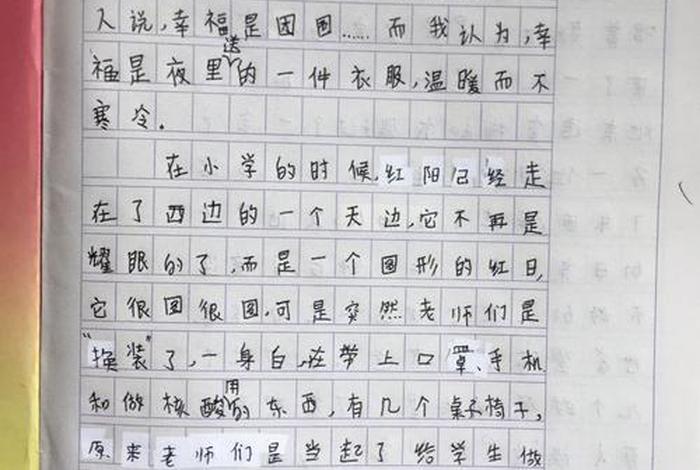 人说,幸福是团圆……而我认为,幸
福是夜里送的一件衣服,温暖而不
寒冷.
在小学的时候,红阳已经走
在了西边的一个天边,它不再是
耀眼的了,而是一个圆形的红日,
它很圆很圆,可是突然老师们是
“换装”了,一身白,在带上口罩、手机
和做核酸用的东西,有几个桌子椅子,
原来老师们是当起了给学生做